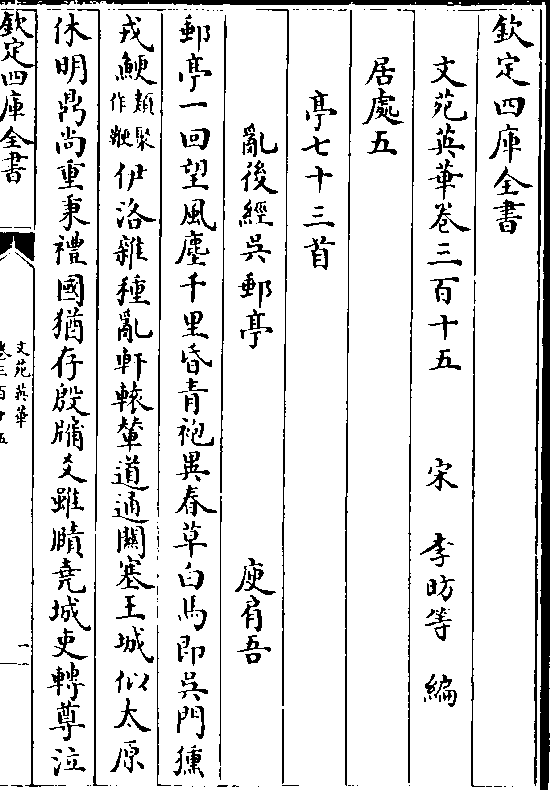 欽定四庫全書
文苑英華卷三百十五 宋 李昉等 編
居處五
亭七十三首
亂後經吳郵亭 庾肩吾
郵亭一回望風塵千里昏青袍異春草白馬即吳門獯
戎鯁類聚作鞭伊洛雜種亂軒轅輦道通關塞王城似太原
休明鼎尚重秉禮國猶存殷牗爻雖賾堯城吏轉尊泣
欽定四庫全書
文苑英華
卷三百十五
一